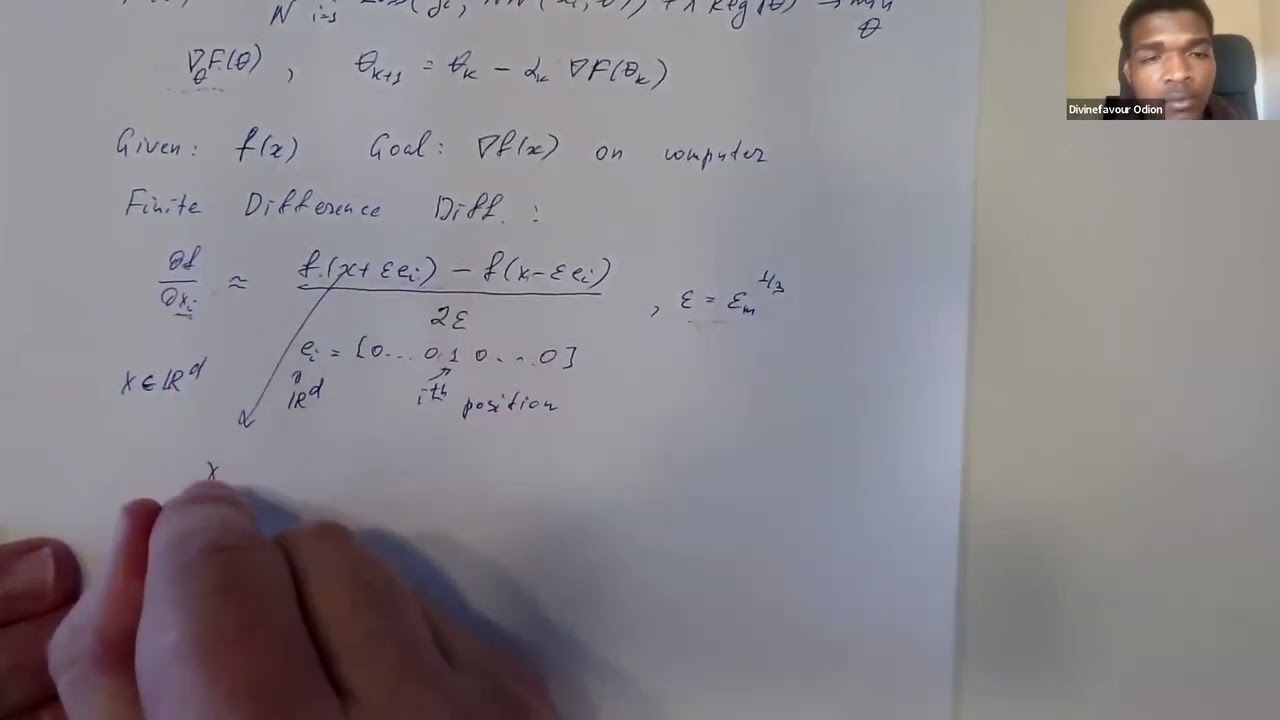 N i=1 Loss(yi, NN(xi, θ)) + λ Reg(θ) → min
θ
∇F(θ) , θk+1 = θk − αk ∇F(θk)
θ
Given: f(x) Goal: ∇f(x) on computer
Finite Difference Diff. :
∂f/∂xi ≈ (f(x+εei) − f(x−εei))/2ε , ε = εm^1/3
ei = [0... 0 1 0 ... 0]
x ∈ ℝ^d ℝ^d ith position
x
Divinefavour Odion